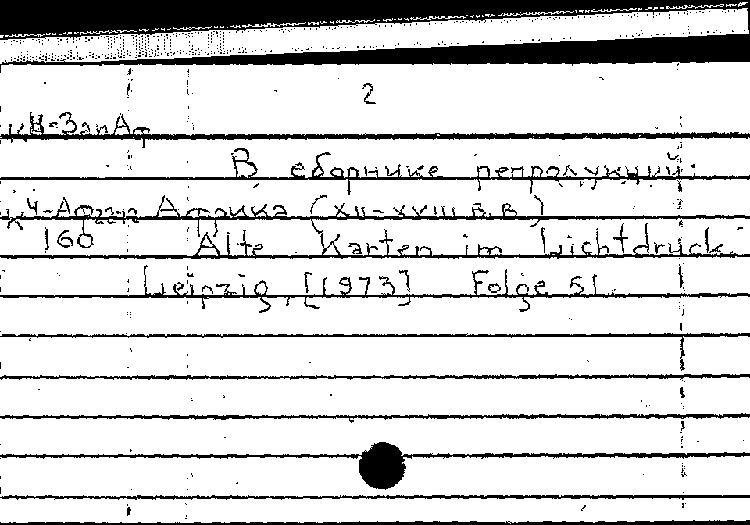 2
К4-ЗапАф
В сборнике репродукций:
К4-Аф Африка (XII-XVIII в.в.)
160 Alte Karten im Lichtdruck.
Leipzig, [1973] Folge 51.